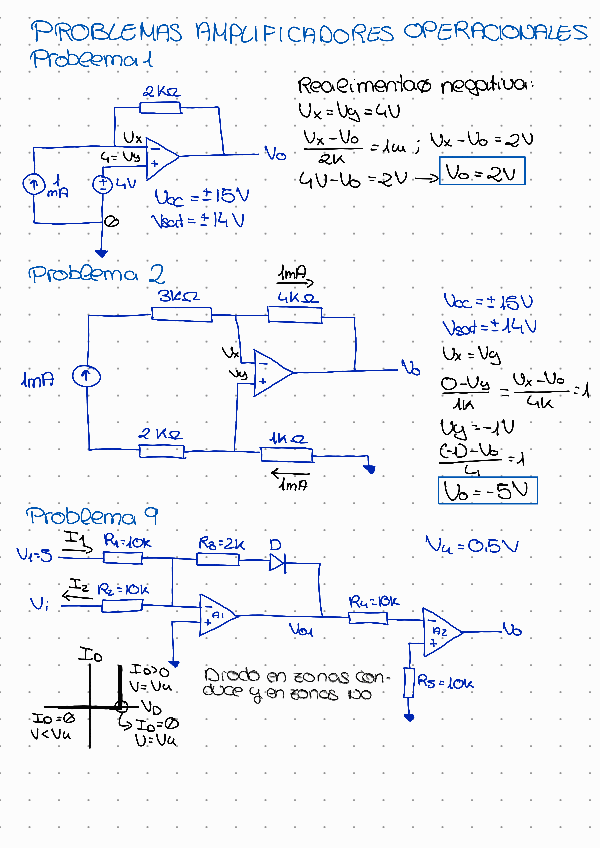 PROBLEMAS AMPLIFICADORES OPERACIONALES
Problema 1
2KΩ
Vx
4=Vy
Vo
1
mA
4V
Vcc = ±15V
Vsat = ±14V
Realimentação negativa:
Vx = Vy = 4V
Vx-Vo/2K = 1m ; Vx-Vo = 2V
4V-Vo = 2V → Vo = 2V
Problema 2
1mA
3KΩ
4KΩ
Vx
Vy
Vo
1mA
2KΩ
1KΩ
1mA
Vcc = ±15V
Vsat = ±14V
Vx = Vy
0-Vy/1K = Vx-Vo/4K = 1
Vy = -1V
(-1)-Vo/4 = 1
Vo = -5V
Problema 9
I1
V1=5
R1=10K
R3=2K
D
Vu = 0.5V
I2
Vi
R2=10K
A1
Vo1
R4=10K
A2
Vo
R5=10K
ID
ID>0
V=Vu
VD
ID=0
V<Vu
ID=0
V=Vu
Diodo en zonas con-
duce y en zonas no